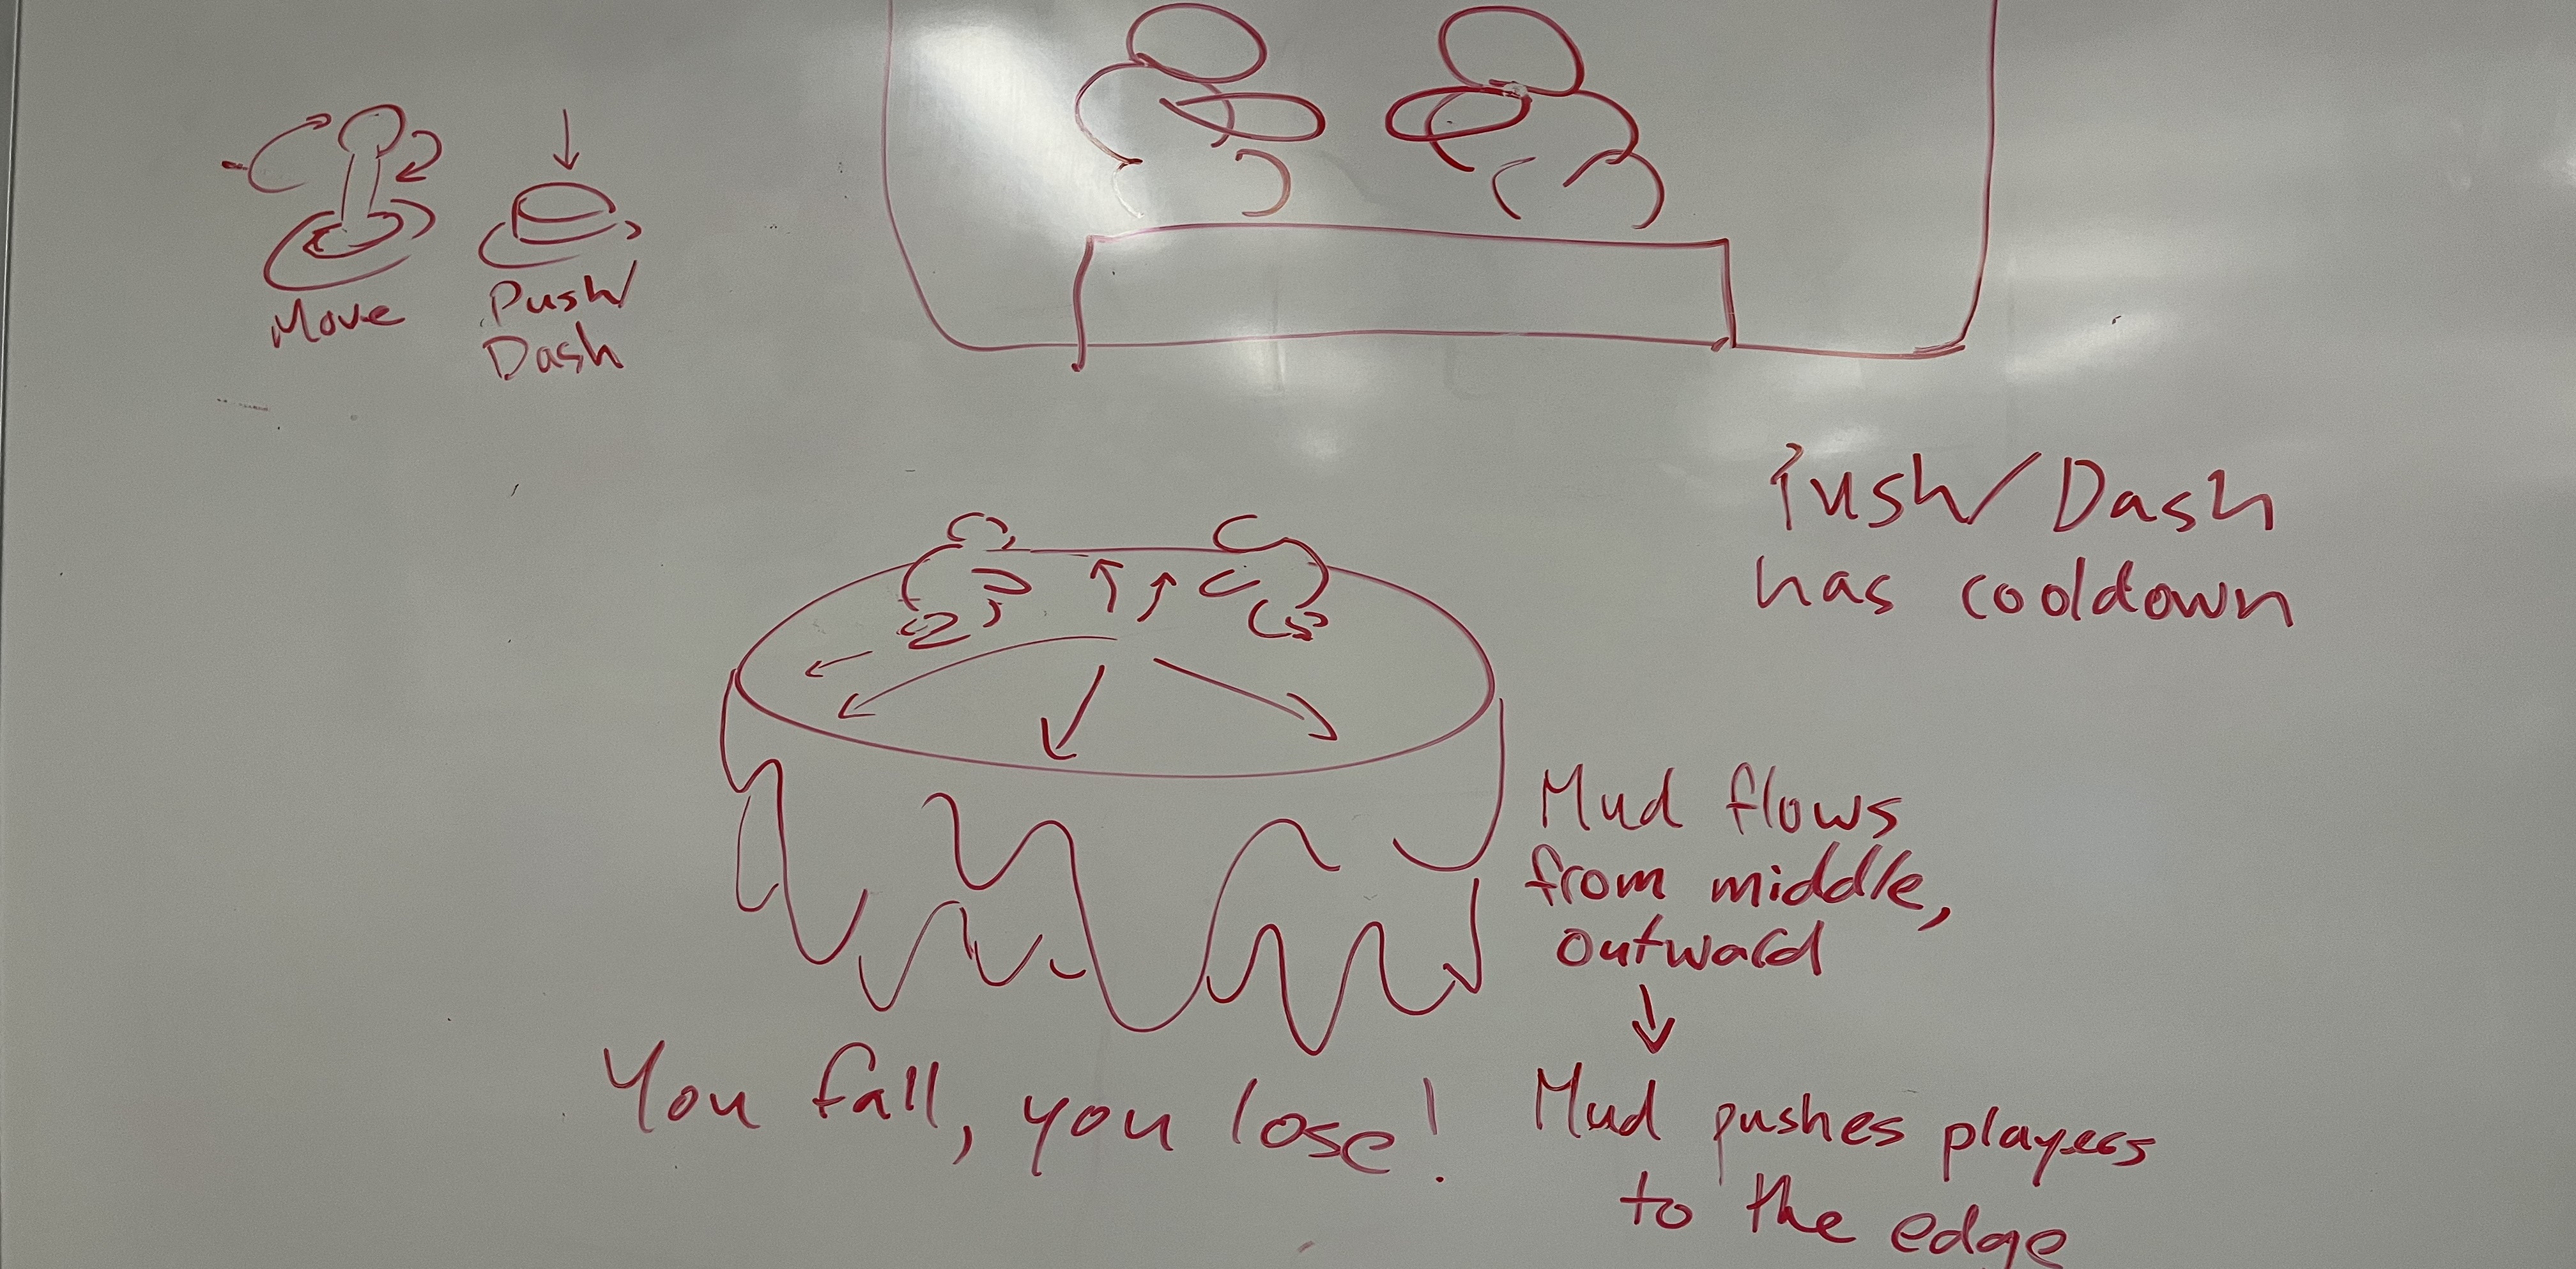 Move
Push/
Dash
Push/Dash
has cooldown
Mud flows
from middle,
outward
You fall, you lose!
Mud pushes players
to the edge